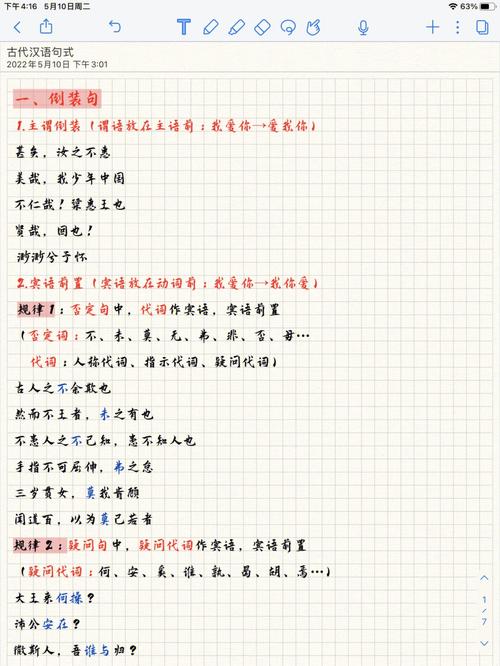 下午4:16 5月10日周二
63%
古代汉语句式
2022年5月10日 下午3:01
一、倒装句
1.主谓倒装（谓语放在主语前：我爱你→爱我你）
甚矣，汝之不惠
美哉，我少年中国
不仁哉！梁惠王也
贤哉，回也！
渺渺兮予怀
2.宾语前置（宾语放在动词前：我爱你→我你爱）
规律1：否定句中，代词作宾语，宾语前置
（否定词：不、未、莫、无、弗、非、否、毋…
代词：人称代词、指示代词、疑问代词）
古人之不余欺也
然而不王者，未之有也
不患人之不己知，患不知人也
手指不可屈伸，弗之怠
三岁贯女，莫我肯顾
闻道百，以为莫己若者
规律2：疑问句中，疑问代词作宾语，宾语前置
（疑问代词：何、安、奚、谁、孰、曷、胡、焉…）
大王来何操？
沛公安在？
微斯人，吾谁与归？
1
7